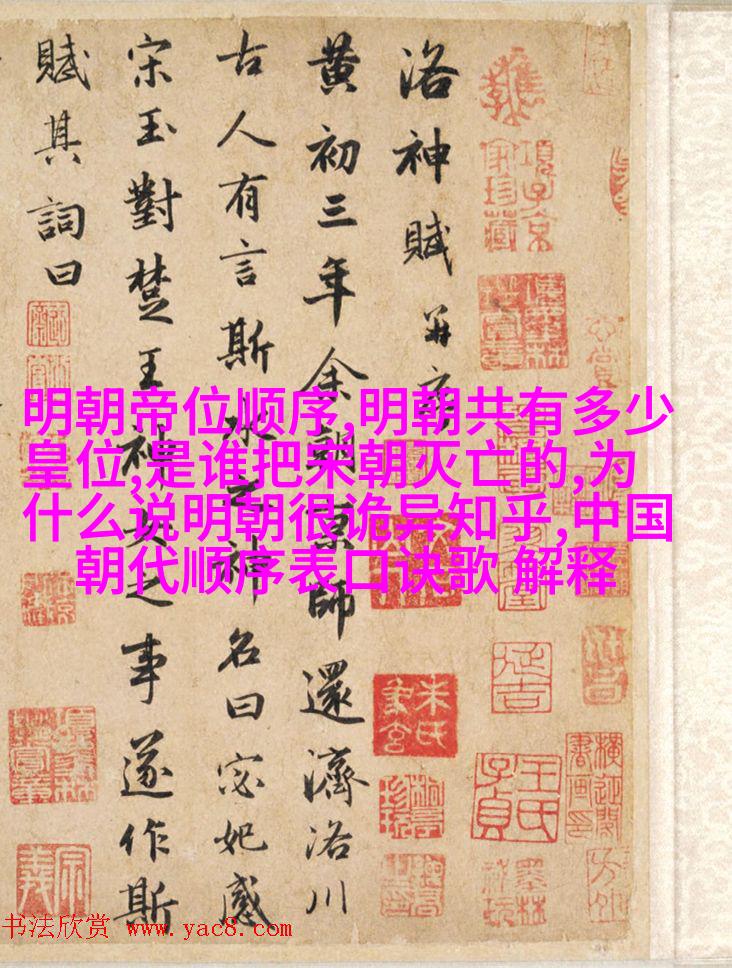 明朝帝位顺序,明朝共有多少
皇位,是谁把宋朝灭亡的,为
什么说明朝很诡异知乎,中国
朝代顺序表口诀歌 解释
洛神賦 并序
黄初三年余朝京師還濟洛川
古人有言斯水之神名曰宓妃感
宋玉對楚王神女之事遂作斯
賦其詞曰
項子京家珍藏
延吉
王氏子貞
书法欣赏 www.yac8.com